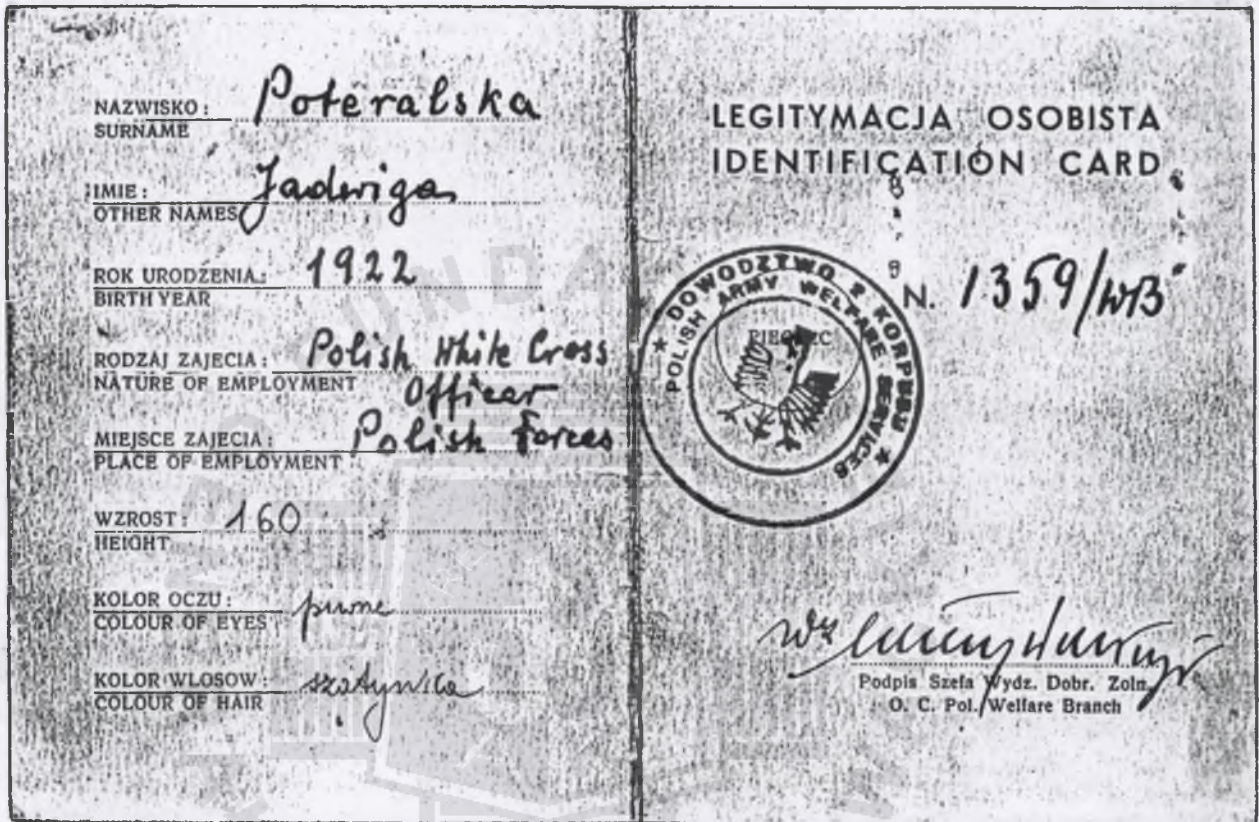 NAZWISKO: Poteralska
SURNAME
IMIE: Jadwiga
OTHER NAMES
ROK URODZENIA: 1922
BIRTH YEAR
RODZAJ ZAJECIA: Polish White Cross
NATURE OF EMPLOYMENT Officer
MIEJSCE ZAJECIA: Polish Forces
PLACE OF EMPLOYMENT
WZROST: 160
HEIGHT
KOLOR OCZU: piwne
COLOUR OF EYES
KOLOR WLOSOW: szatynka
COLOUR OF HAIR
LEGITYMACJA OSOBISTA
IDENTIFICATION CARD
N. 1359/WB
★ DOWODZTWO 2 KORPUSU ★
POLISH ARMY WELFARE SERVICES
PIECZEC
Podpis Szefa Wydz. Dobr. Zoln.
O. C. Pol. Welfare Branch